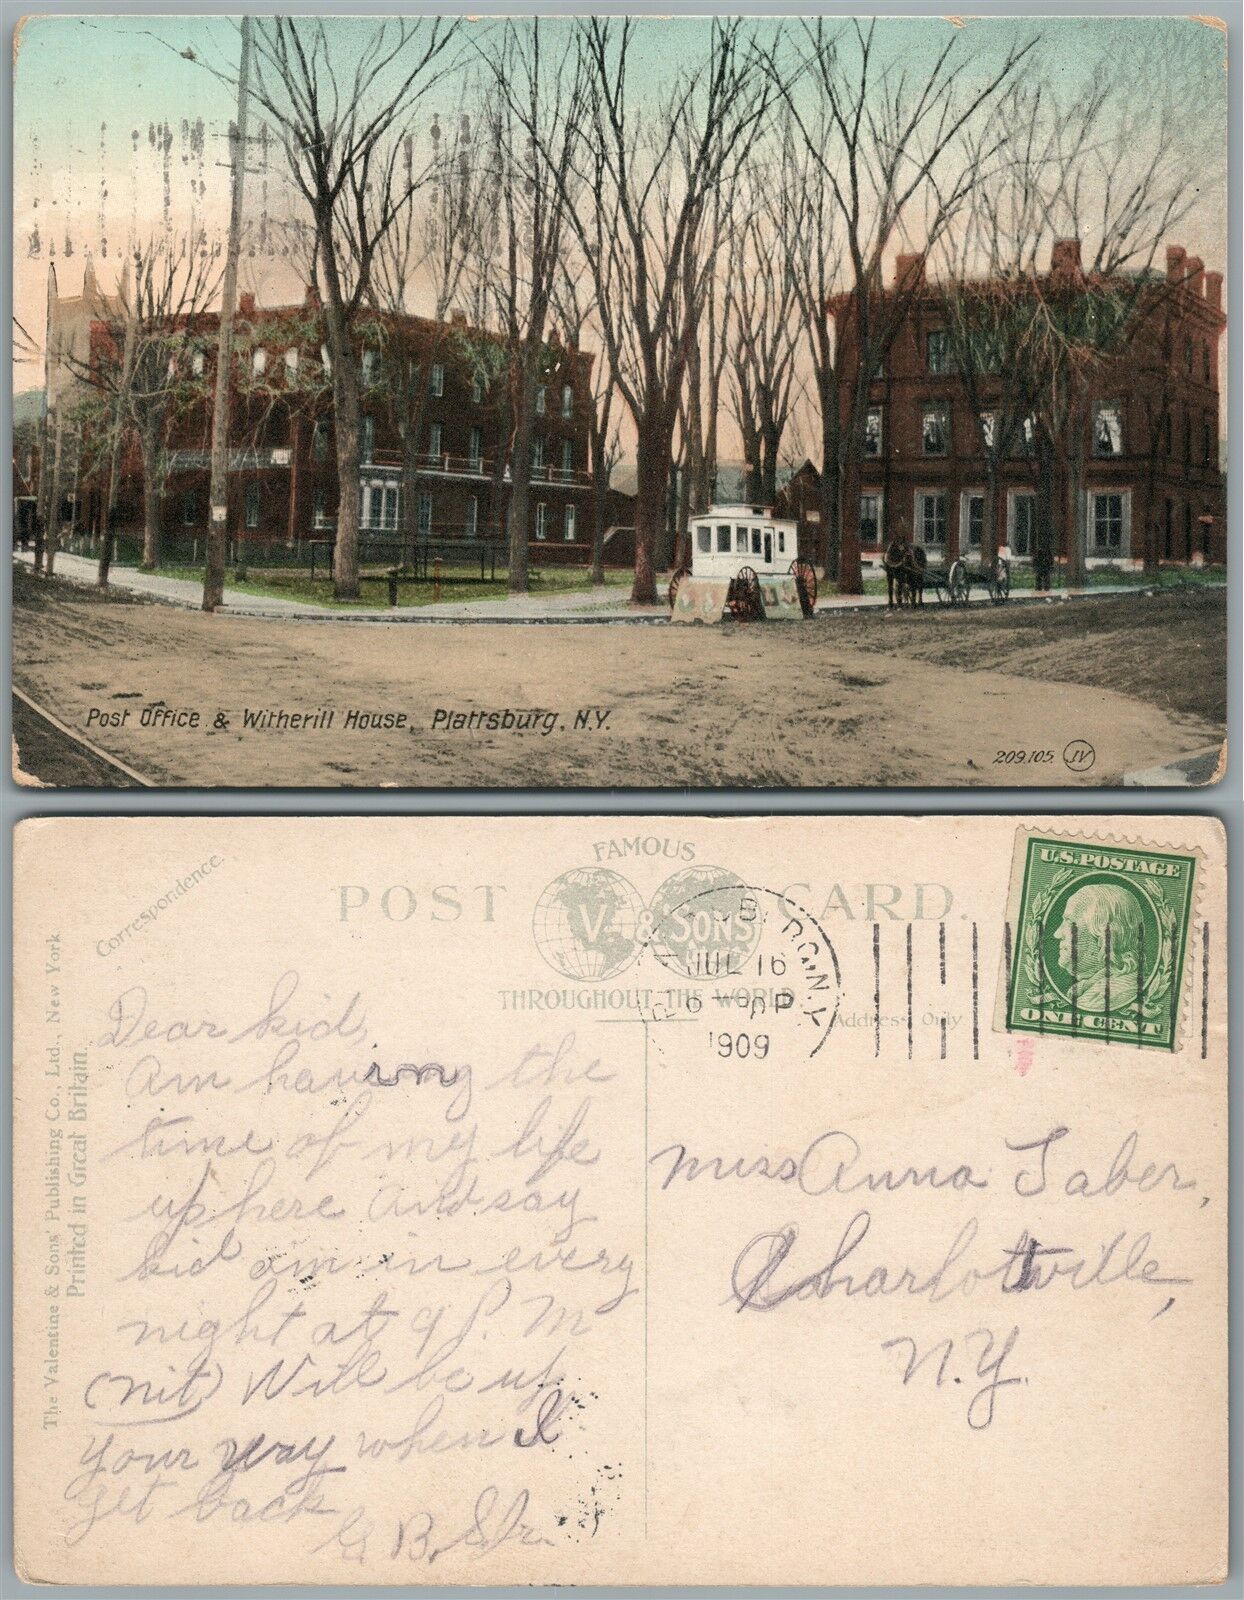 Post Office & Witherill House, Plattsburg, N.Y.
209,105. JV
Correspondence.
POST CARD.
FAMOUS
V & SONS
THROUGHOUT THE WORLD
Address Only
JUL 16
6 - PM
1909
N.Y.
U.S. POSTAGE
ONE CENT
The Valentine & Sons' Publishing Co., Ltd., New York
Printed in Great Britain.
Dear kid,
Am having the
time of my life
up here And say
kid am in every
night at 9 P. M
(nit) Will be up
your way when I
get back
G B.
Miss Anna Taber,
Charlotteville,
N.Y.